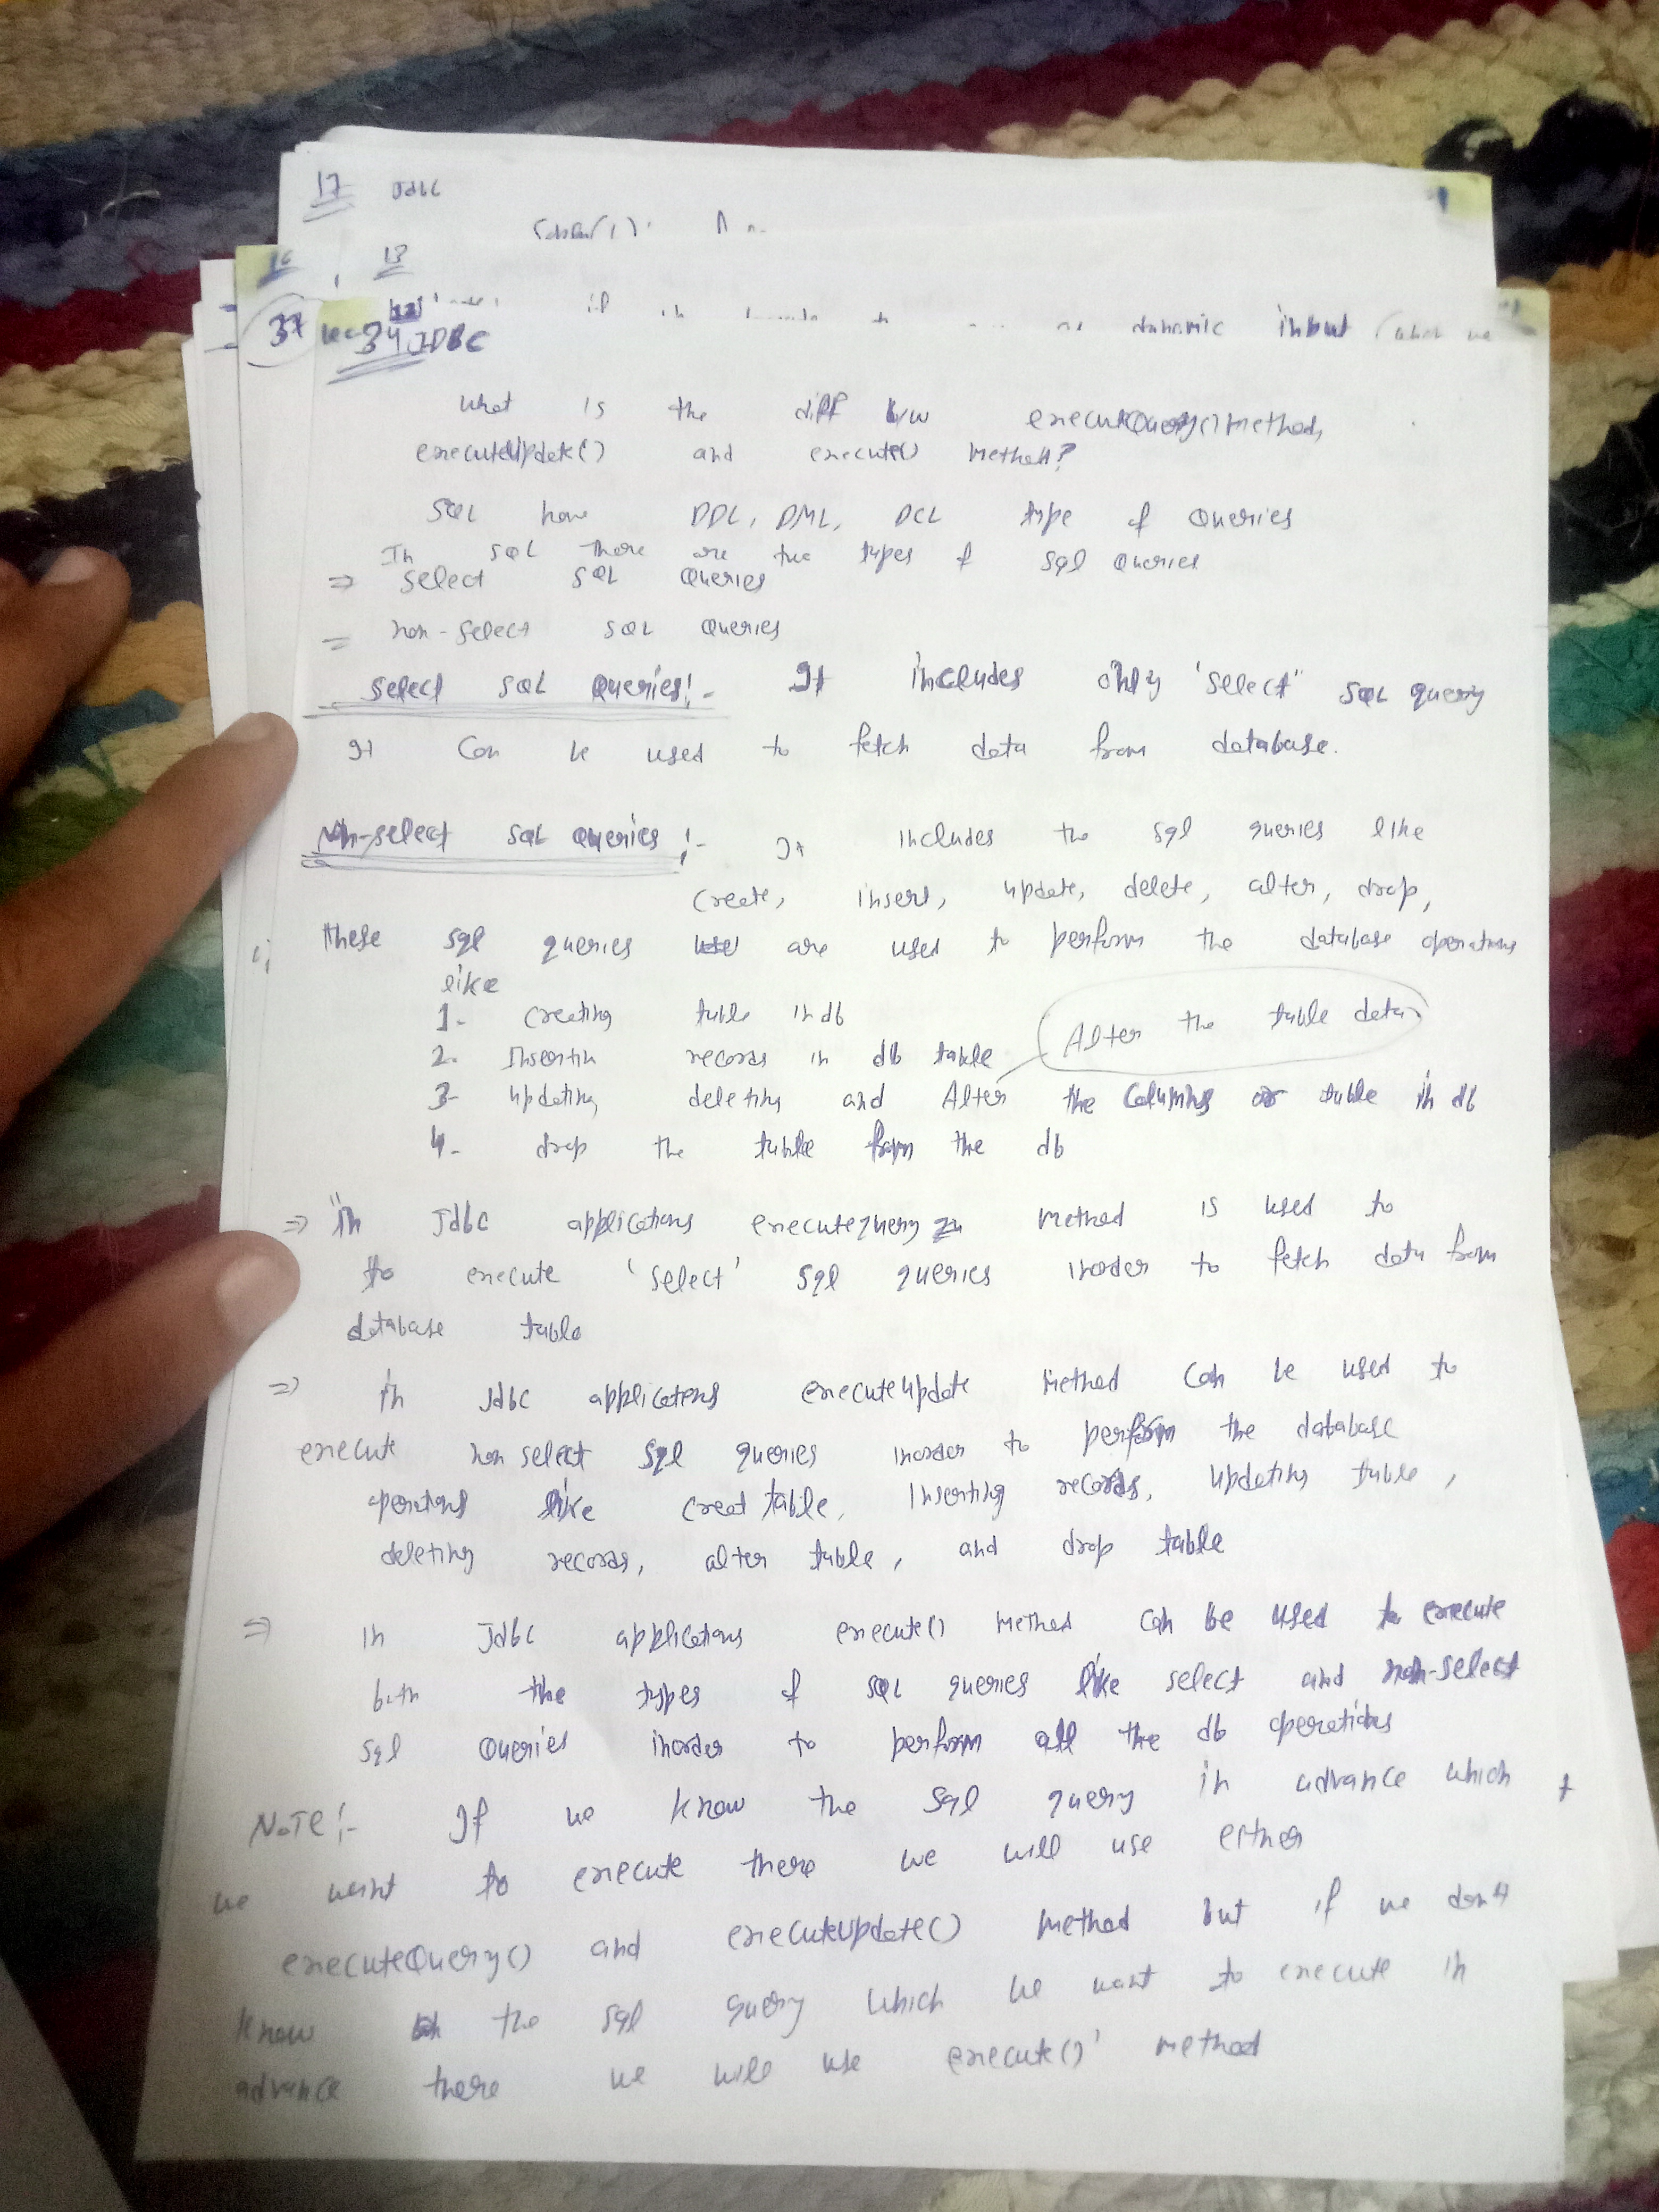 17 Jdbc
13
dynamic input
37 lec 34 JDBC
What is the diff b/w executeQuery() method,
executeUpdate() and execute() method?
SQL have DDL, DML, DCL type of Queries
In SQL there are two types of sql queries
=> select SQL Queries
= non-select SQL Queries
select SQL Queries:- It includes only 'select" SQL query
It can be used to fetch data from database.
Non-select SQL Queries :- It includes the sql queries like
create, insert, update, delete, alter, drop,
these sql queries are used to perform the database operations
like
1- creating table in db
Alter the table data
2. Insertin records in db table
3- updating deleting and Alter the columns or table in db
4- drop the table from the db
=> in Jdbc applications executequery method is used to
to execute 'select' sql queries inorder to fetch data from
database table
=> in Jdbc applications executeupdate method can be used to
execute non select sql queries inorder to perform the database
operations like creat table, Inserting records, updating table,
deleting records, alter table, and drop table
=> in Jdbc applications execute() method can be used to execute
both the types of SQL queries like select and non-select
sql Queries inorder to perform all the db operations
NoTe :- If we know the sql query in advance which
we want to execute there we will use either
executeQuery() and executeUpdate() method but if we don't
know the sql query which we want to execute in
advance there we will use execute()' method